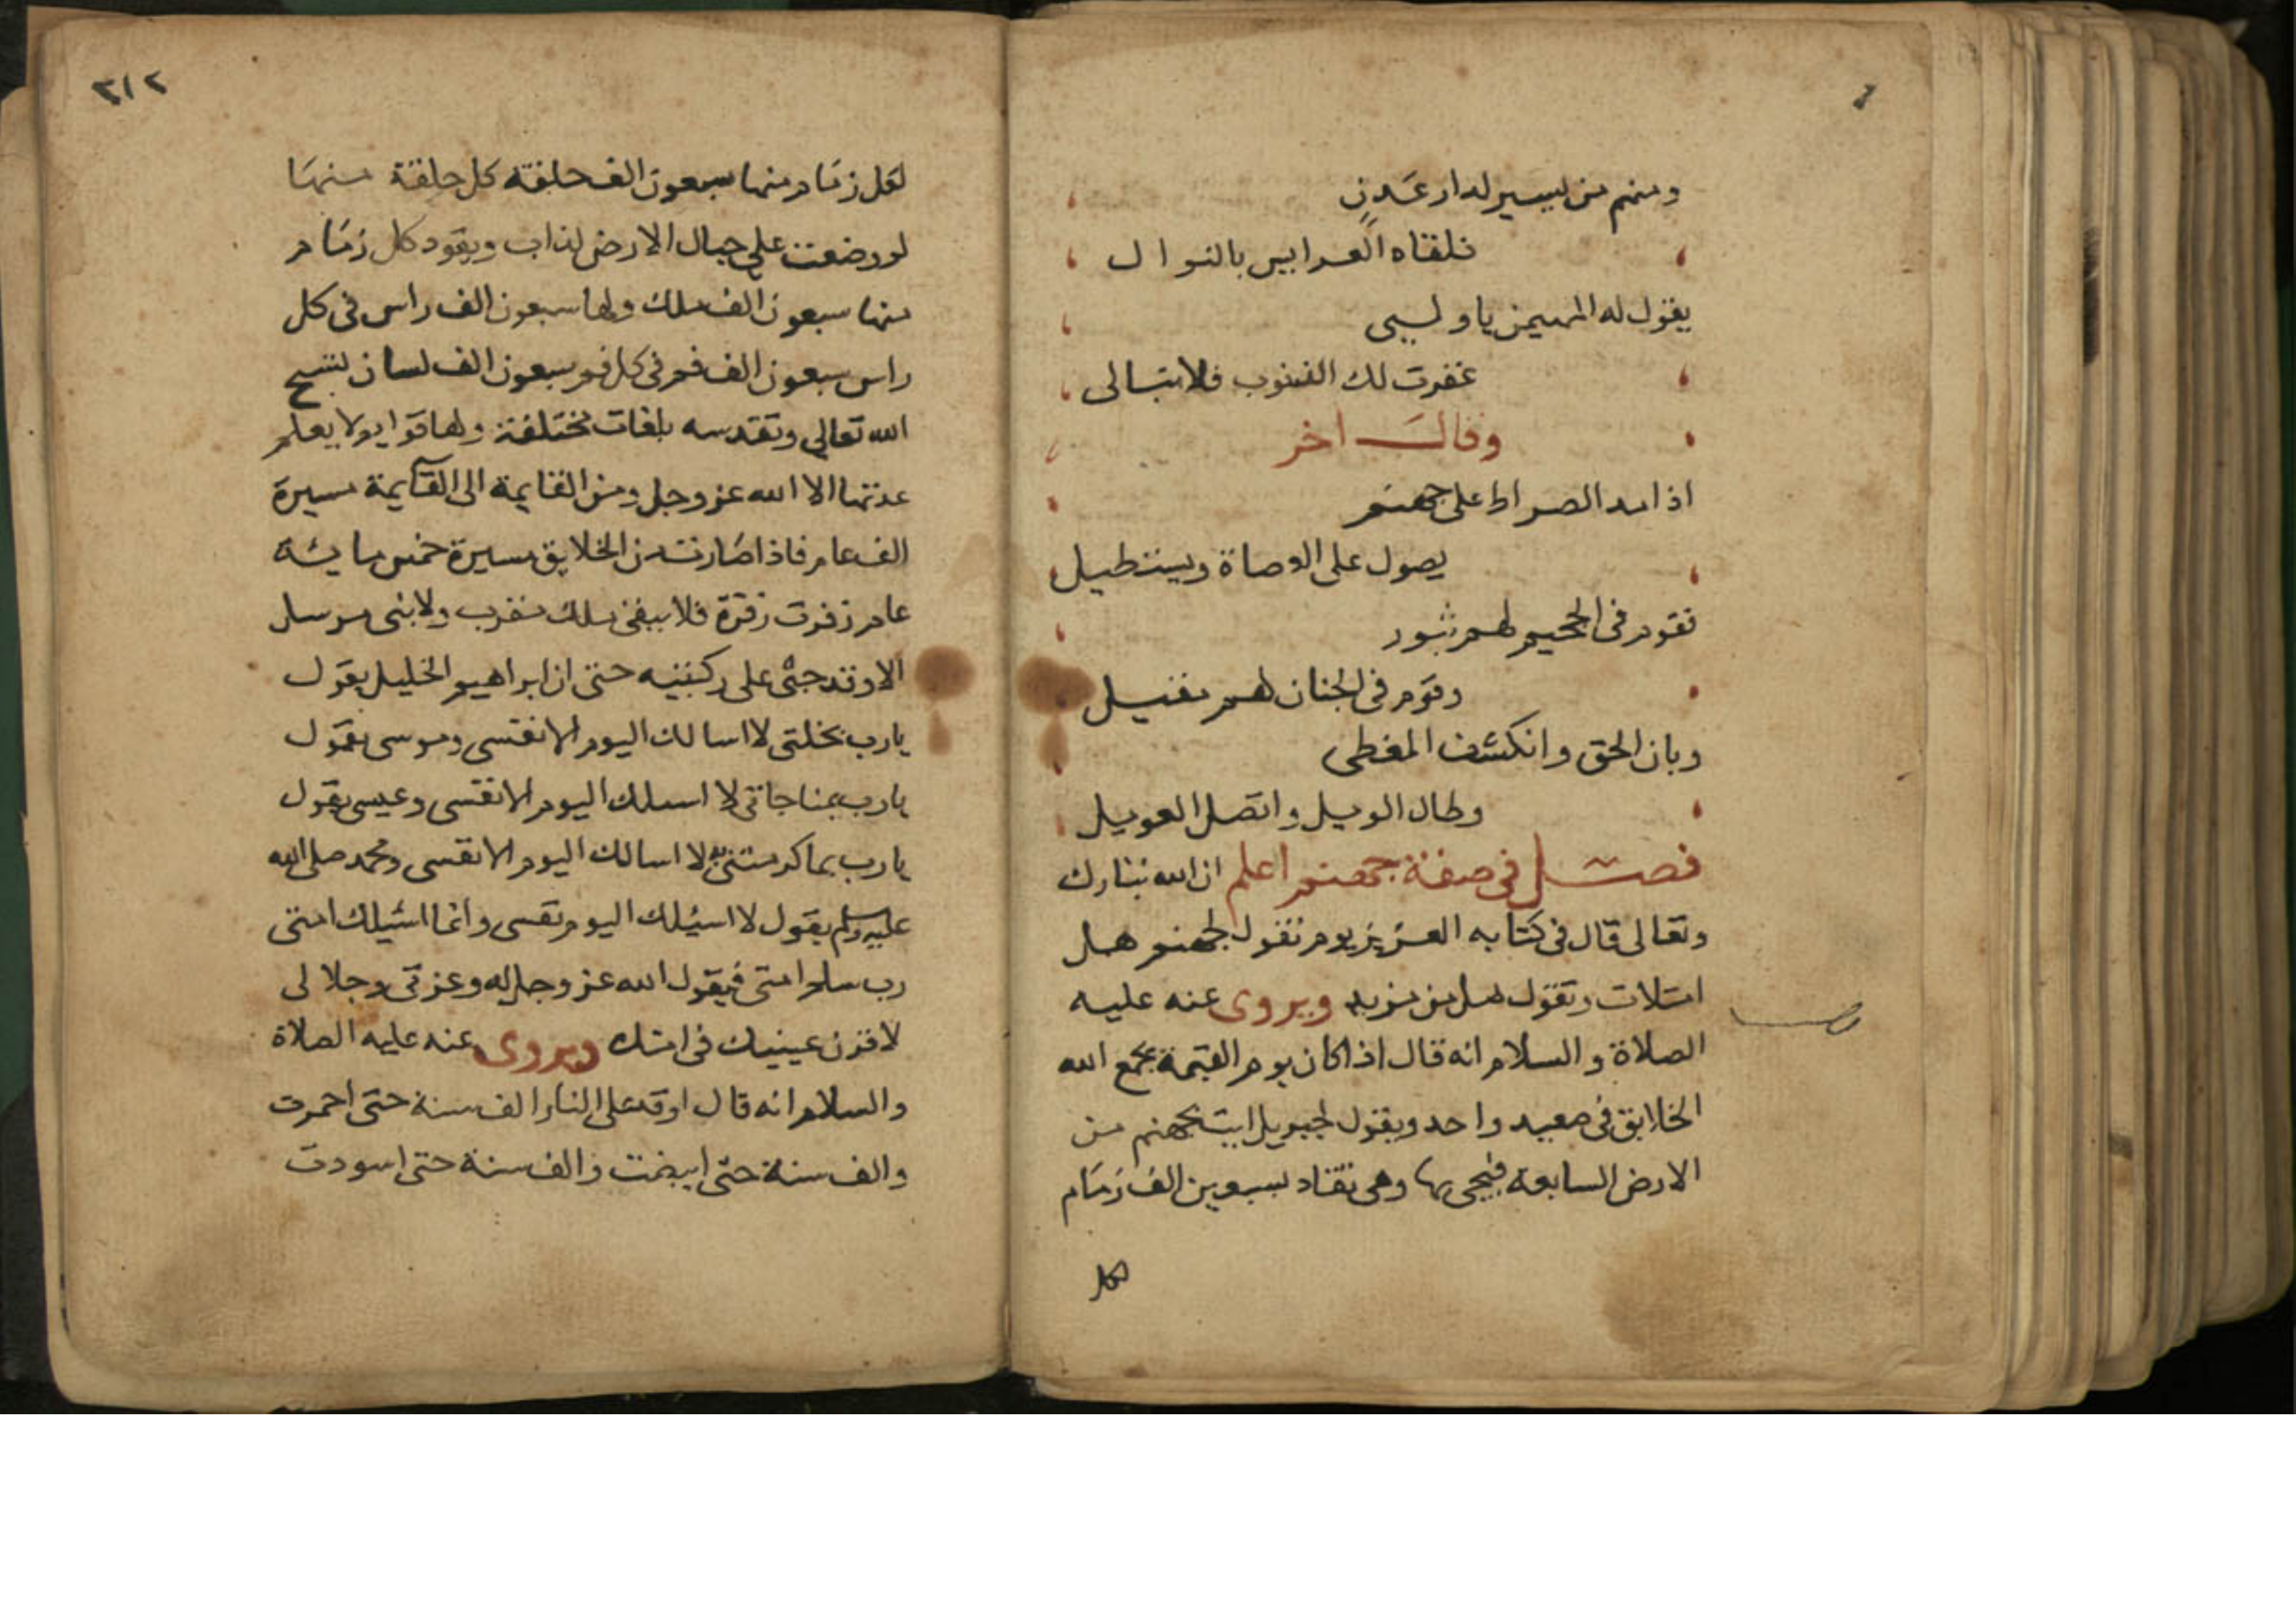 ومنهم من يسير لدار عدن
تلقاه العرايس بالنوال
يقول له المهيمن يا وليي
غفرت لك الذنوب فلا تبالي
وقال اخر
اذا مد الصراط على جهنم
يصول على العصاة ويستطيل
فقوم في الجحيم لهم ثبور
وقوم في الجنان لهم مقيل
وبان الحق وانكشف المغطى
وطال الويل واتصل العويل
فصل في صفة جهنم اعلم ان الله تبارك
وتعالى قال في كتابه العزيز يوم نقول لجهنم هل
امتلات وتقول هل من مزيد ويروى عنه عليه
الصلاة والسلام انه قال اذا كان يوم القيمة يجمع الله
الخلايق في صعيد واحد ويقول لجبريل ايت بجهنم من
الارض السابعة فيجي بها وهي تقاد بسبعين الف زمام
لكل
٣١٢
لكل زمام منها سبعون الف حلقة كل حلقة منها
لو وضعت على جبال الارض لذاب ويقود كل زمام
منها سبعون الف ملك ولها سبعون الف راس في كل
راس سبعون الف فم في كل فم سبعون الف لسان تسبح
الله تعالى وتقدسه بلغات مختلفة ولها قوايم لا يعلم
عدتها الا الله عز وجل ومن القايمة الى القايمة مسيرة
الف عام فاذا صارت من الخلايق مسيرة خمس ماية
عام زفرت زفرة فلا يبقى ملك مقرب ولا نبي مرسل
الا وقد جثى على ركبتيه حتى ان ابراهيم الخليل يقول
يارب بخلتي لا اسالك اليوم الا نفسي وموسى يقول
يارب بمناجاتي لا اسلك اليوم الا نفسي وعيسى يقول
يارب بما كرمتني به لا اسالك اليوم الا نفسي ومحمد صلى الله
عليه وسلم يقول لا اسئلك اليوم نفسي وانما اسئلك امتي
رب سلم امتي فيقول الله عز وجل له وعزتي وجلالي
لاقرن عينيك في امتك ويروى عنه عليه الصلاة
والسلام انه قال اوقد على النار الف سنة حتى احمرت
والف سنة حتى ابيضت والف سنة حتى اسودت